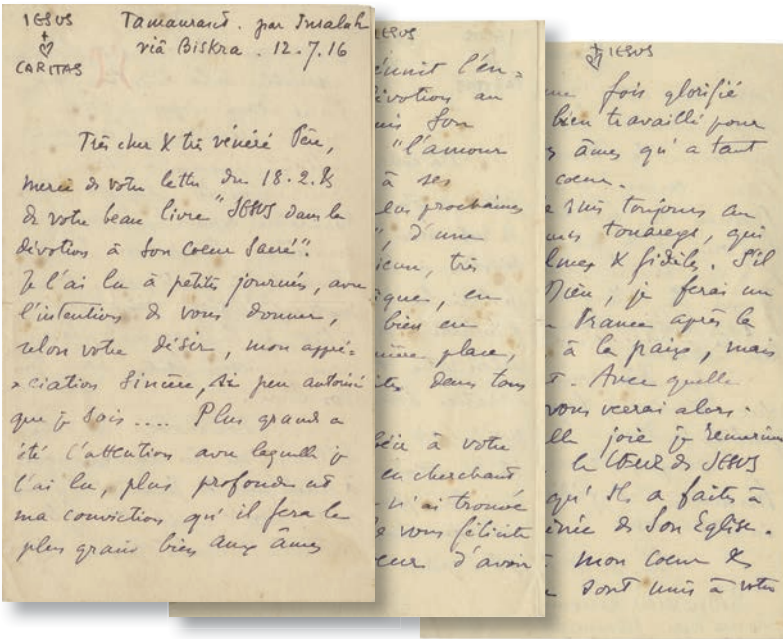 IESUS
+
♡
CARITAS
Tamanrasset. par Insalah
viâ Biskra. 12.7.16
Très cher & très vénéré Père,
merci de votre lettre du 18.2. &
de votre beau livre "JESUS dans la
dévotion à Son Coeur Sacré".
Je l'ai lu à petites journées, avec
l'intention de vous donner,
selon votre désir, mon appré=
=ciation sincère, si peu autorisé
que je sois.... Plus grande a
été l'attention avec laquelle je
l'ai lu, plus profonde est
ma conviction qu'il fera le
plus grand bien aux âmes
IESUS
l'en=
dévotion au
Son
"l'amour
à ses
prochaines
", d'une
très
en
bien en
place,
dans tous
à votre
en cherchant
n'ai trouvé
vous félicite
d'avoir
IESUS
fois glorifié
bien travaillé pour
âmes qu'a tant
coeur.
suis toujours au
touaregs, qui
& fidèles. S'il
Dieu, je ferai un
France après la
à la paix, mais
. Avec quelle
vous verrai alors.
joie je remercierai
le COEUR de JESUS
qu'Il a faits à
de Son Eglise.
mon coeur &
sont unis à votre